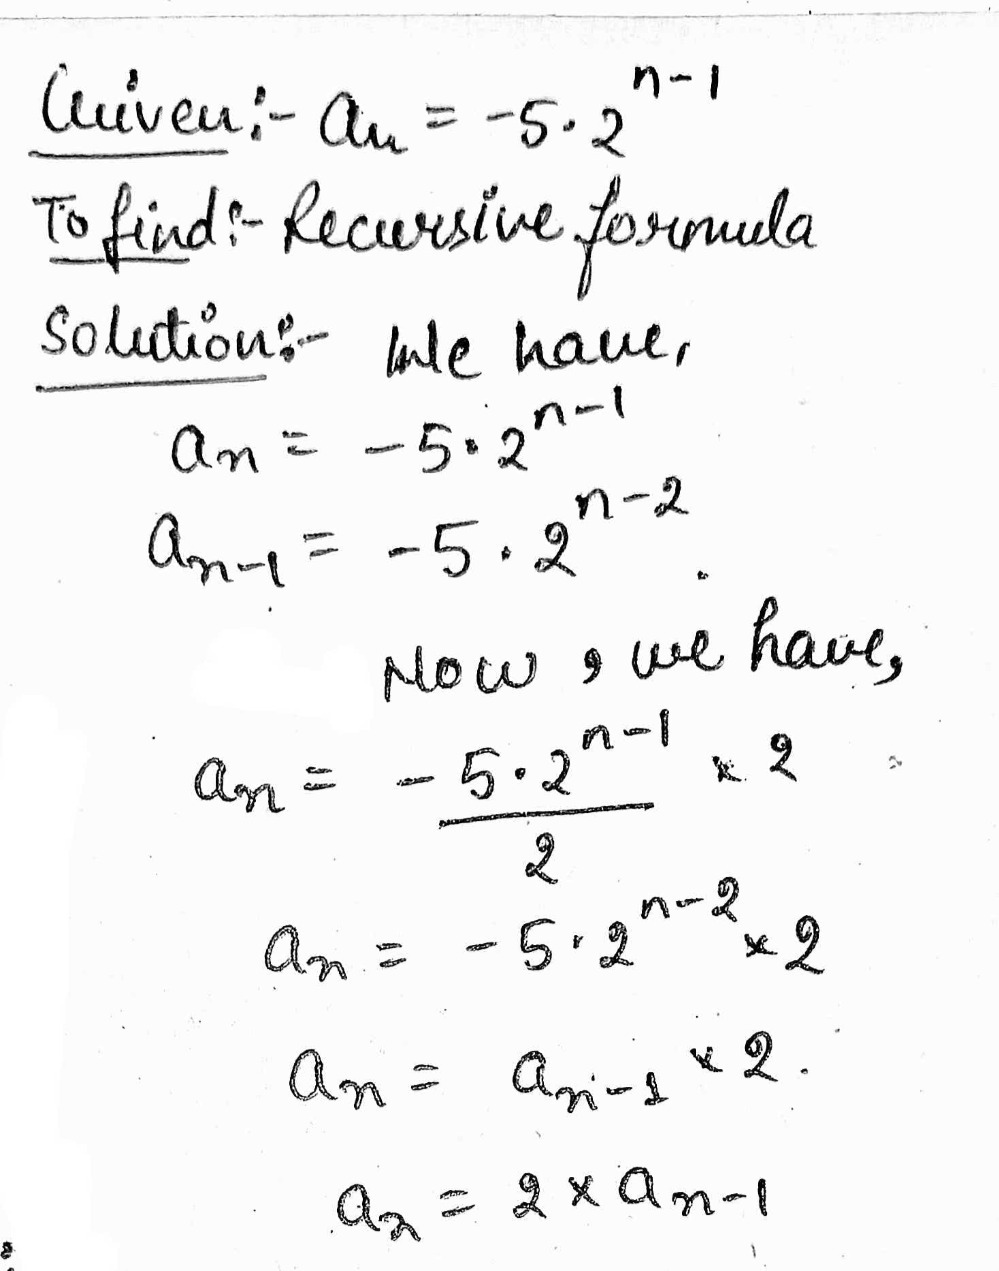 Given:- aₙ = -5·2ⁿ⁻¹
To find:- Recursive formula
Solution:- We have,
aₙ = -5·2ⁿ⁻¹
aₙ₋₁ = -5·2ⁿ⁻²
Now, we have,
aₙ = -5·2ⁿ⁻¹/2 × 2
aₙ = -5·2ⁿ⁻² × 2
aₙ = aₙ₋₁ × 2.
aₙ = 2 × aₙ₋₁